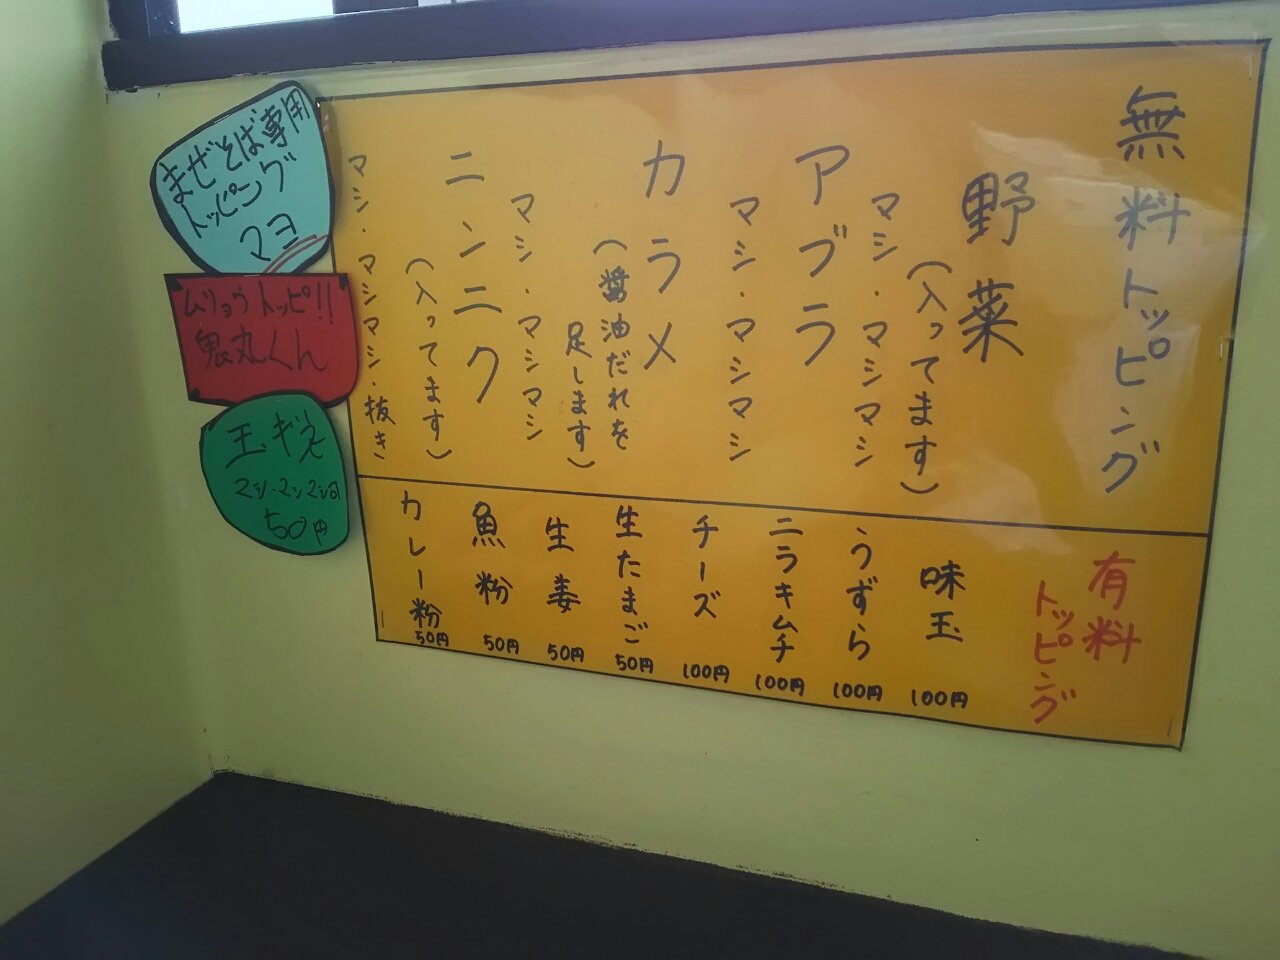 無料トッピング
野菜
(入ってます)
マシ・マシマシ
アブラ
マシ・マシマシ
カラメ
(醤油だれを
足します)
マシ・マシマシ
ニンニク
(入ってます)
マシ・マシマシ・抜き
有料
トッピング
味玉 100円
うずら 100円
ニラキムチ 100円
チーズ 100円
生たまご 50円
生姜 50円
魚粉 50円
カレー粉 50円
まぜそば専用
トッピング
マヨ
ムリョウトッピ!!
鬼丸くん
玉ギ
マシ・マシマシ
50円